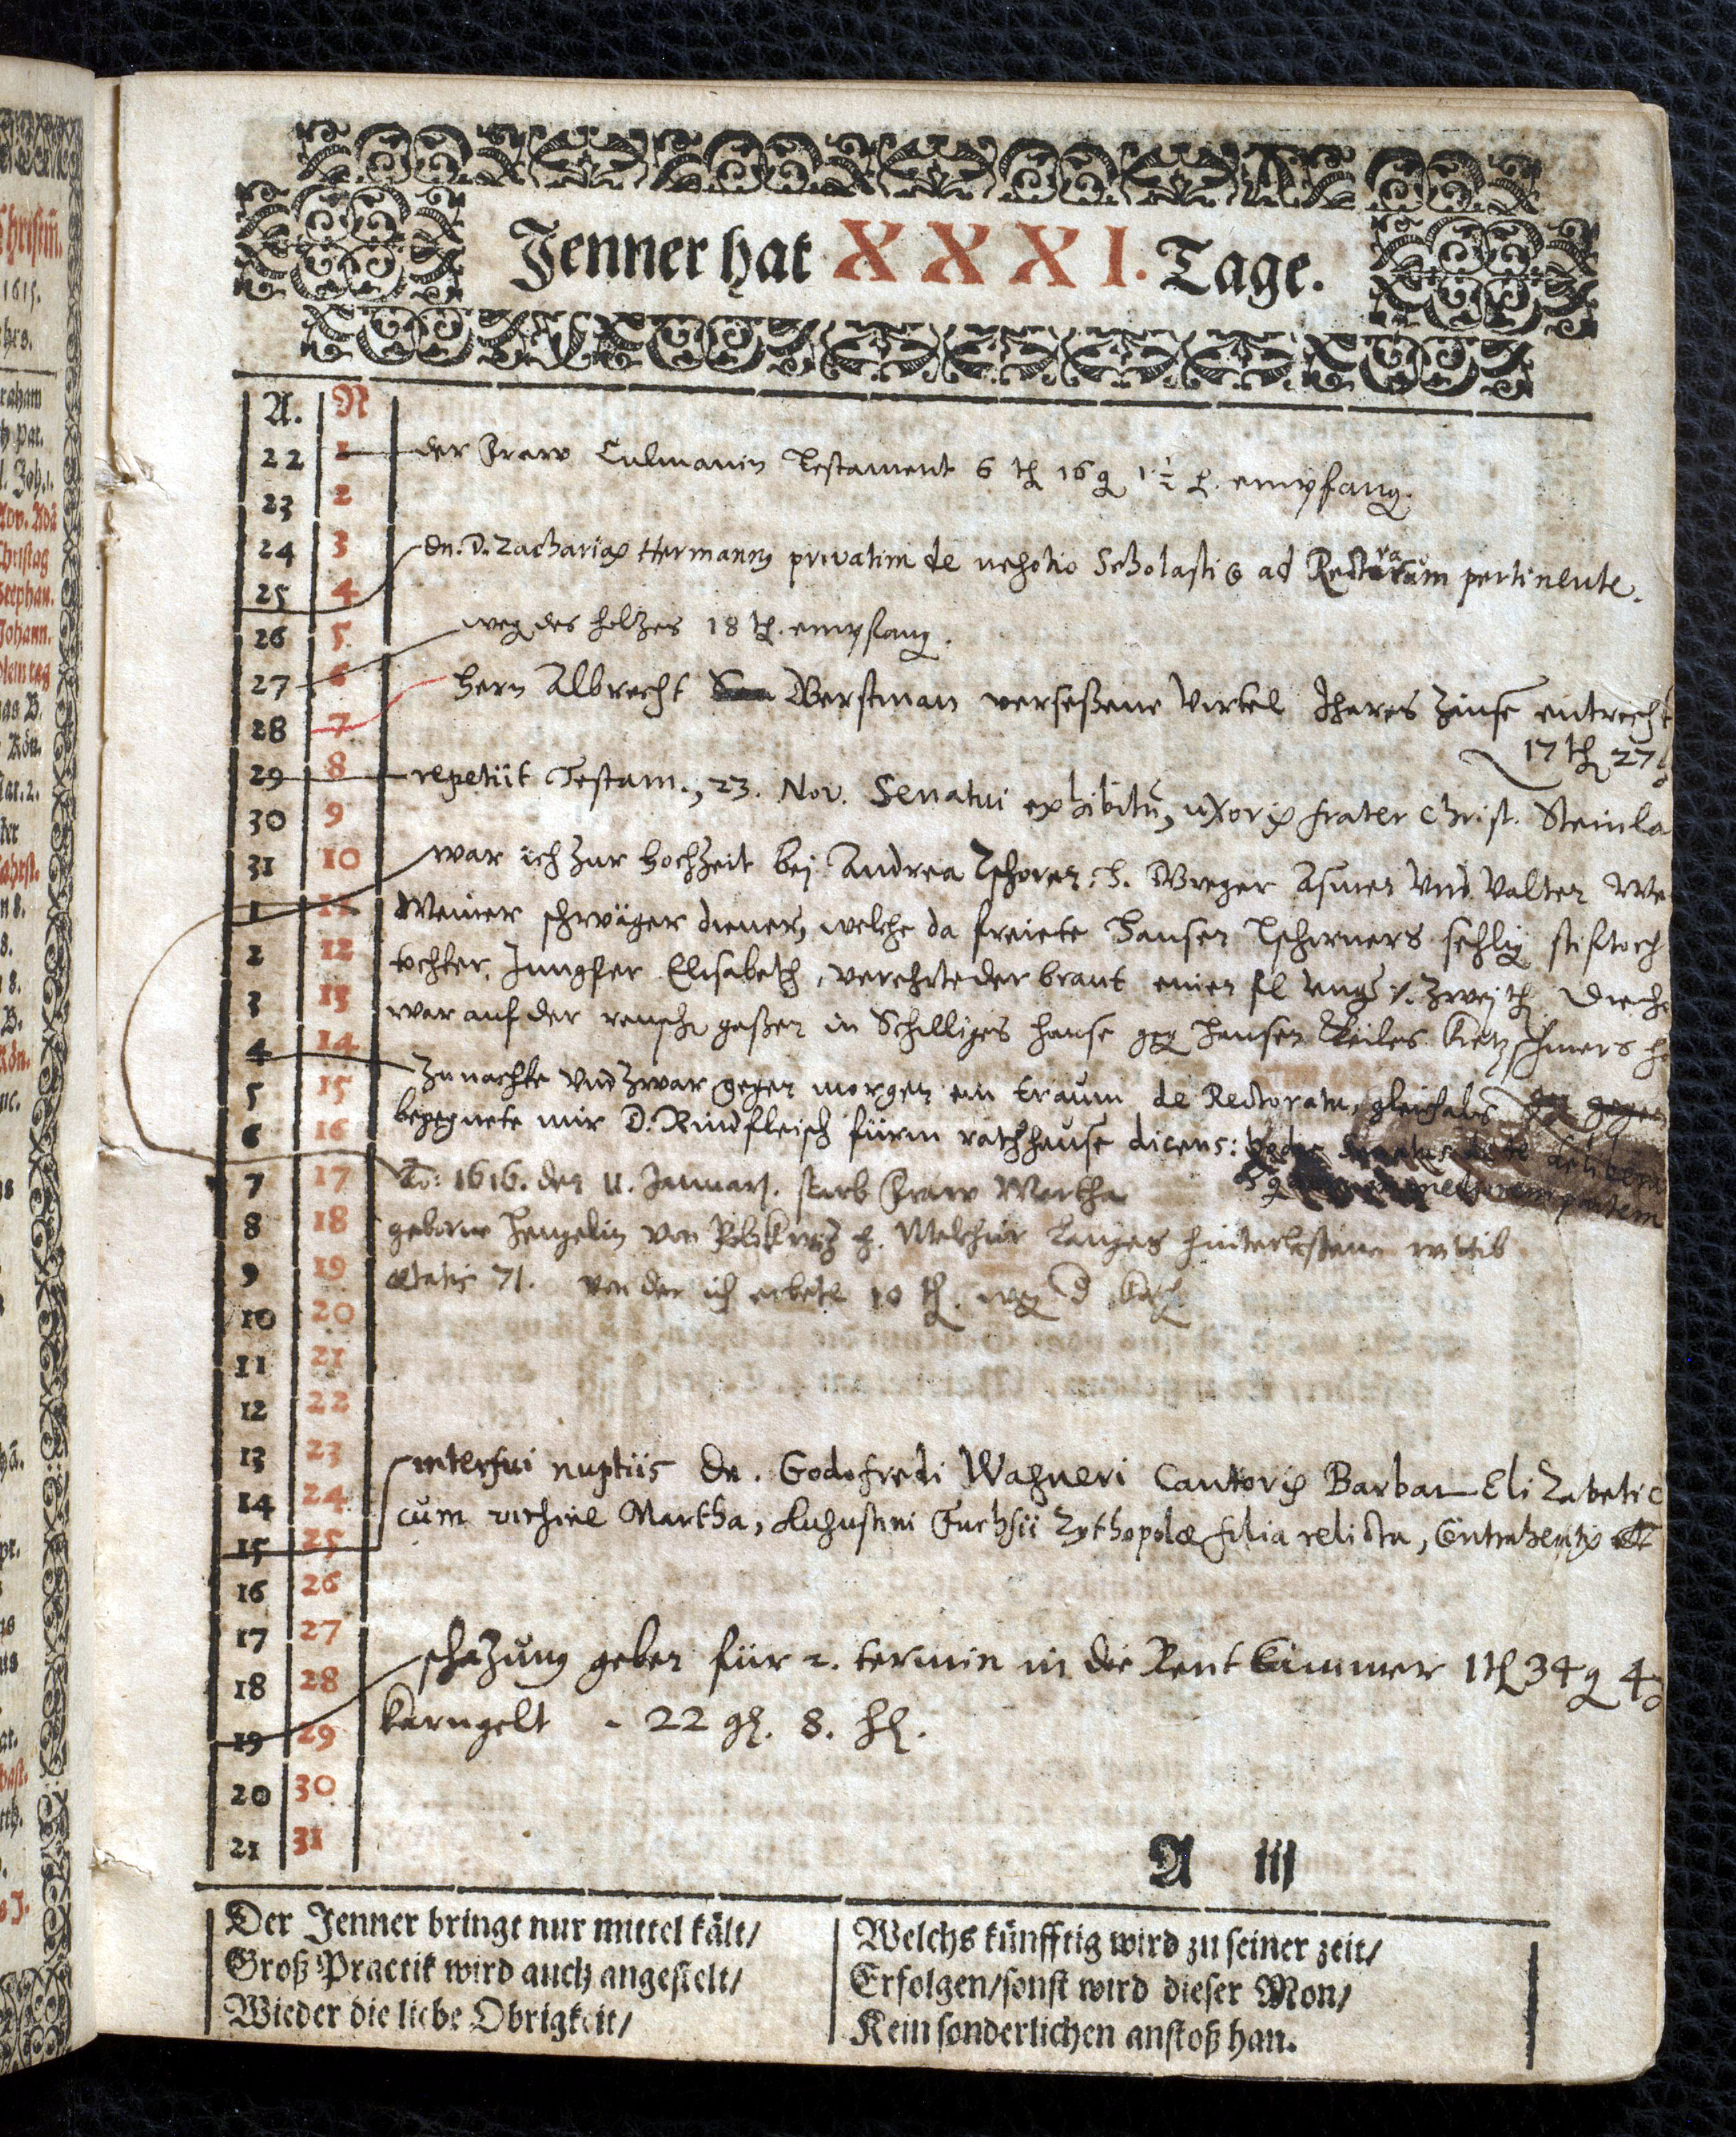 Jenner hat XXXI. Tage.
A. N
22 1 der Fraw Culmanin Testament 6 16 1½ empfang.
23 2
24 3 Dn. D. Zacharias Hermannus privatim de negotio Scholastico ad Rectoratum pertinente.
25 4
26 5 weg des holzes 18 empfang.
27 6
28 7 Hern Albrecht verseßene Virtel Jhares Zinse entricht
17 27
29 8 repetiit Testam., 23. Nov. Senatui exhibitū, uxoris frater Christ. Steinla
30 9
31 10 war ich zur hochzeit bej Andrea H. Asmen Vnd Valten
1 11 Meiner schwäger diener, welche da freiete Hansen Tschirners sehlig
2 12 tochter, Jungfer Elisabeth, verehrte der braut einen fl ung. zwej
3 13 war auf der gaßen in Schilliges hause geg Hansen
4 14 Zu nachte Vnd zwar gegen morgen ein traum de Rectoratu, gleichals
5 15 begegnete mir D. Rindfleisch fürm rathhause dicens:
6 16
7 17 Ao: 1616. den 11. Januarj. starb Fraw Martha
8 18 geborne von H. Melchior Langes hinterlaßene wittib
9 19 ætatis 71. von der ich 10
10 20
11 21
12 22
13 23 interfui nuptiis Dn. Godofredi Wagneri Cantoris Barbar Elizabetic
14 24 cum virgine Martha, Augustini Fuchsii Zythopolæ filia relicta, Contrahentis
15 25
16 26
17 27 schazung geben für 2. termin in die Rent Cammer 1 34 4
18 28
19 29 Karngelt - 22 gl. 8. hl.
20 30
21 31
A iij
Der Jenner bringt nur mittel kält/
Groß Practik wird auch angestelt/
Wieder die liebe Obrigkeit/
Welchs künfftig wird zu seiner zeit/
Erfolgen/sonst wird dieser Mon/
Kein sonderlichen anstoß han.